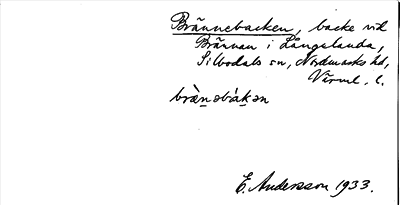 Brännebacken, backe vid
Brännan i Långelanda,
Silbodals sn, Nordmarks hd,
Värml. l.
bræ̀nəbákən
E. Andersson 1933.